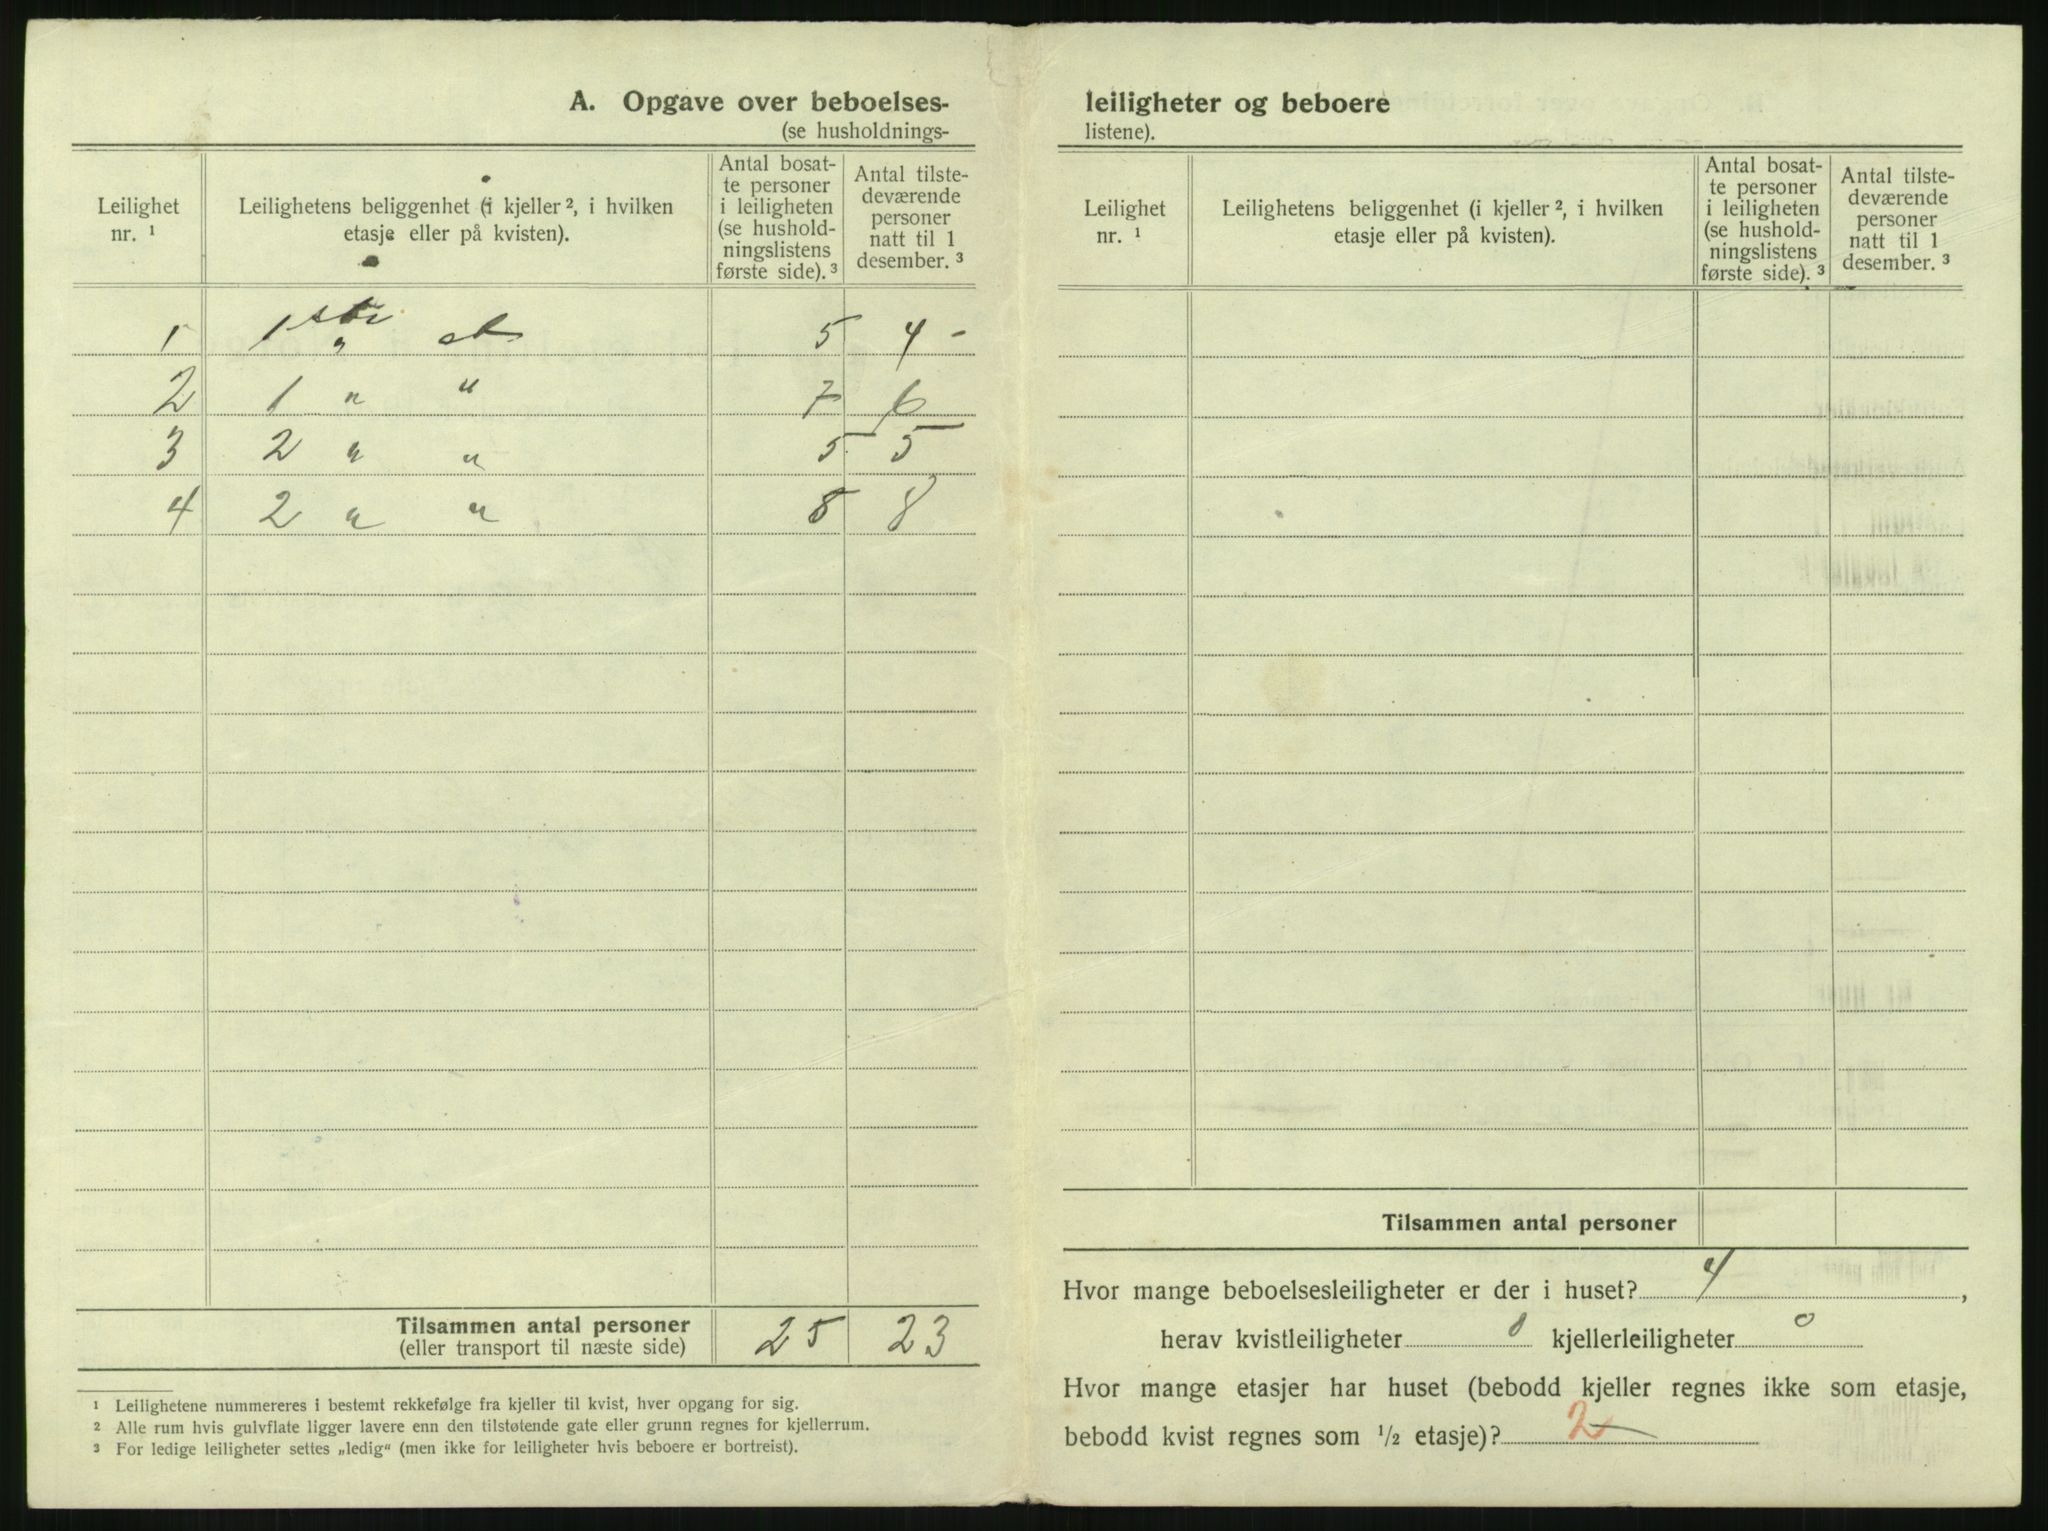 A. Opgave over beboelses-
(se husholdnings-
Leilighet
nr. ¹
Leilighetens beliggenhet (i kjeller ², i hvilken
etasje eller på kvisten).
Antal bosat-
te personer
i leiligheten
(se hushold-
ningslistens
første side). ³
Antal tilste-
deværende
personer
natt til 1
desember. ³
1 1ste " et 5 4 -
2 1 " " 7 6
3 2 " " 5 5
4 2 " " 8 8
Tilsammen antal personer
(eller transport til næste side)
25 23
¹ Leilighetene nummereres i bestemt rekkefølge fra kjeller til kvist, hver opgang for sig.
² Alle rum hvis gulvflate ligger lavere enn den tilstøtende gate eller grunn regnes for kjellerrum.
³ For ledige leiligheter settes „ledig“ (men ikke for leiligheter hvis beboere er bortreist).
leiligheter og beboere
listene).
Leilighet
nr. ¹
Leilighetens beliggenhet (i kjeller ², i hvilken
etasje eller på kvisten).
Antal bosat-
te personer
i leiligheten
(se hushold-
ningslistens
første side). ³
Antal tilste-
deværende
personer
natt til 1
desember. ³
Tilsammen antal personer
Hvor mange beboelsesleiligheter er der i huset? 4,
herav kvistleiligheter 0 kjellerleiligheter 0
Hvor mange etasjer har huset (bebodd kjeller regnes ikke som etasje,
bebodd kvist regnes som ½ etasje)? 2